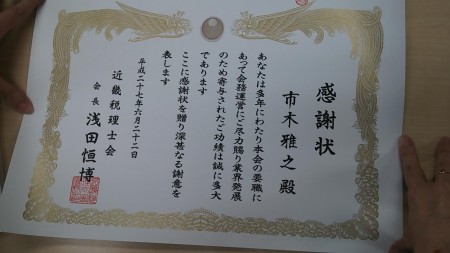 感謝状
市木雅之 殿
あなたは多年にわたり本会の要職に
あって会務運営にご尽力賜り業界発展
のため寄与されたご功績は誠に多大
であります
ここに感謝状を贈り深甚なる謝意を
表します
平成二十七年六月二十二日
近畿税理士会
会長 浅田恒博